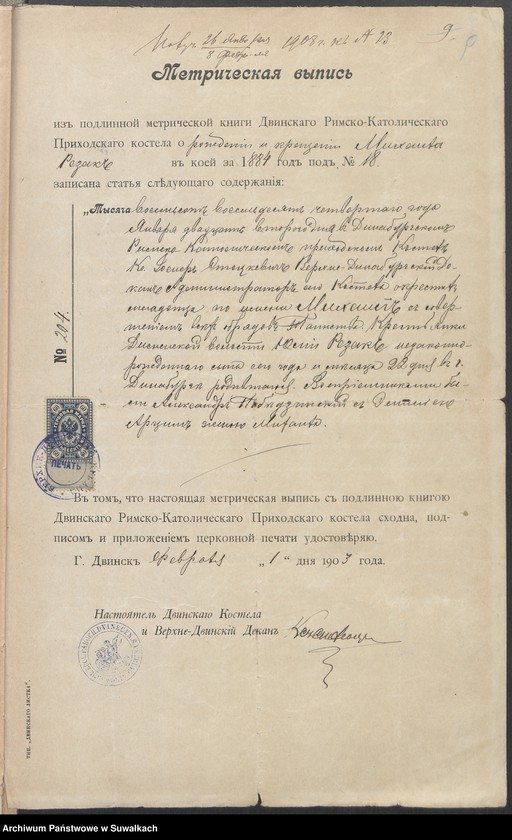 26 января
8 февр-ля 1903 г. № А 23
9.
Метрическая выпись
изъ подлинной метрической книги Двинскаго Римско-Католическаго
Приходскаго костела о рожденіи и крещеніи Михаила
Резакъ въ коей за 1884 годъ подъ № 18.
записана статья слѣдующаго содержанія:
„Тысяча восемьсотъ восемьдесятъ четвертаго года
Января двадцать втораго дня въ Динабургскомъ
Римско Католическомъ приходскомъ Костелѣ
Кс. Верхне-Динабургскій Де-
канъ Администраторъ сего Костела окрестилъ
младенца по имени Михаилъ съ совер-
шеніемъ всѣхъ обрядовъ Таинства. Крест
волости Юліи Резакъ незаконно-
рожденнаго сына сего года и мѣсяца 22 дня въ г.
Динабургѣ родившагося. Воспріемниками бы-
ли Александръ съ
женою Михаила.
№ 204.
ПЕЧАТЬ
Въ томъ, что настоящая метрическая выпись съ подлинною книгою
Двинскаго Римско-Католическаго Приходскаго костела сходна, под-
писомъ и приложеніемъ церковной печати удостовѣряю.
Г. Двинскъ Февраля „1" дня 1903 года.
Настоятель Двинскаго Костела
и Верхне-Двинскій Деканъ
ТИП. „ДВИНСКАГО ЛИСТКА".
Archiwum Państwowe w Suwałkach